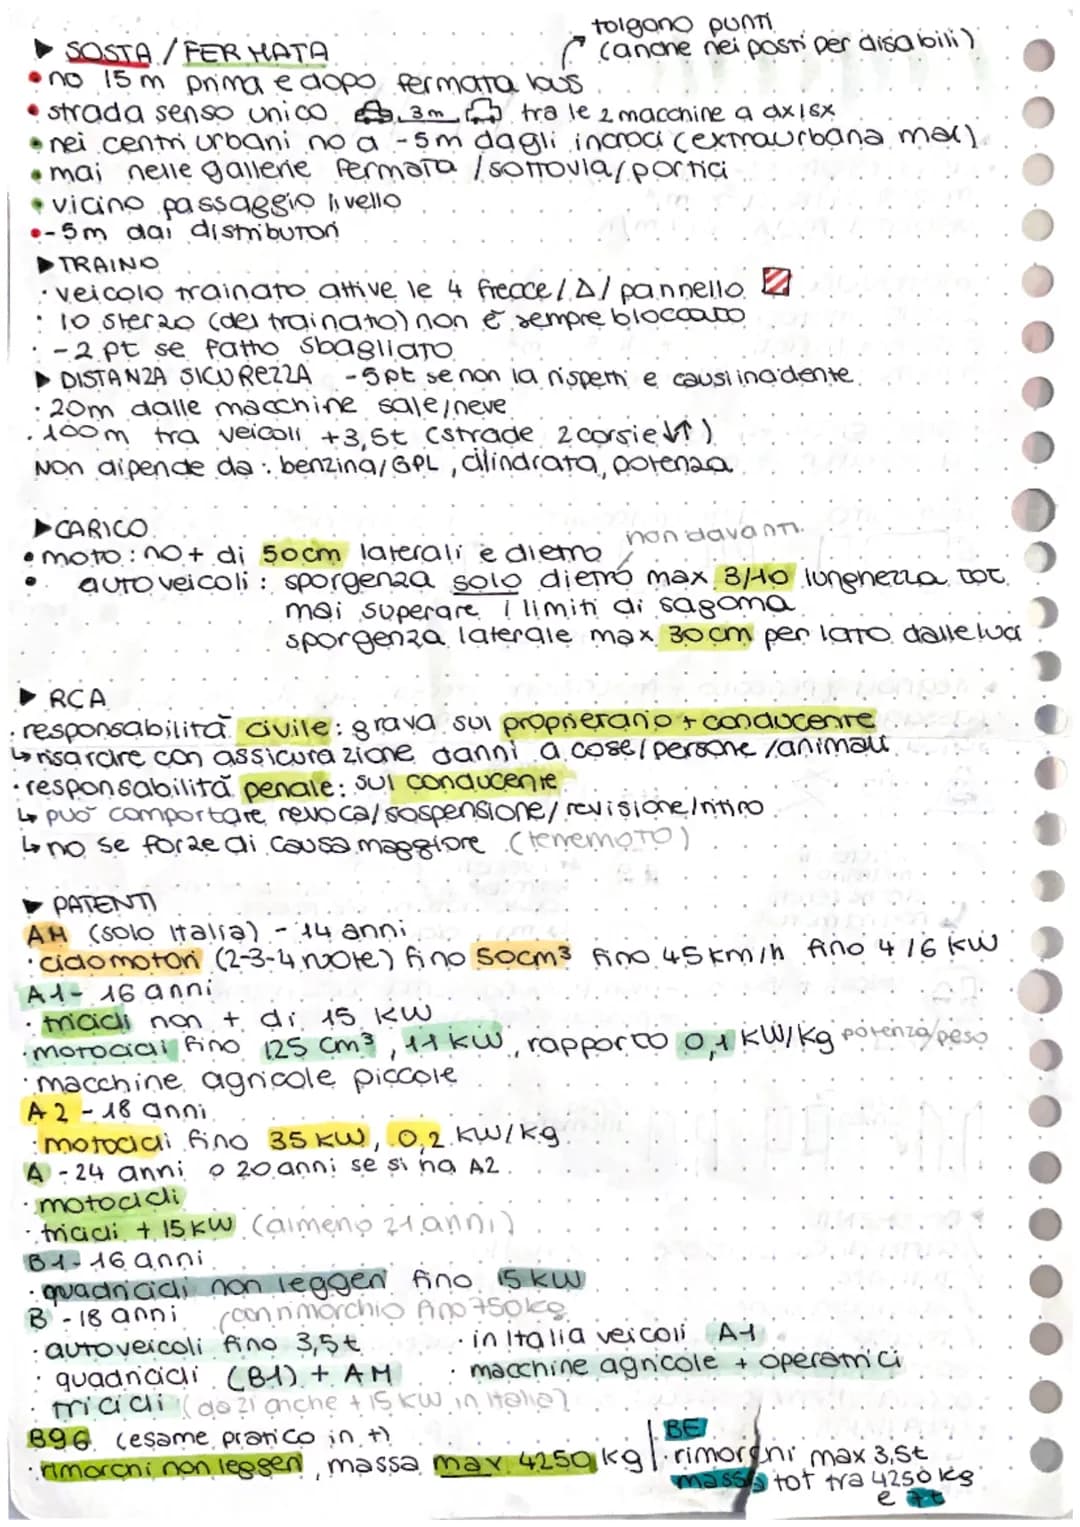 tolgono punti
▶ SOSTA / FERMATA (anche nei posti per disabili)
• no 15 m prima e dopo fermata bus
• strada senso unico 3m tra le 2 macchine a dx/sx
• nei centri urbani no a -5m dagli incroci (extraurbana mai)
• mai nelle gallerie fermata / sottovia / portici
• vicino passaggio livello
• -5m dai distributori
▶ TRAINO
• veicolo trainato attive le 4 frecce / Δ / pannello
• lo sterzo (del trainato) non è sempre bloccato
• -2 pt se fatto sbagliato
▶ DISTANZA SICUREZZA -5pt se non la rispetti e causi incidente
• 20m dalle macchine sale/neve
• 100m tra veicoli +3,5t (strade 2 corsie ↓↑)
NON dipende da: benzina/GPL, cilindrata, potenza
▶ CARICO
non davanti
• moto: no + di 50cm laterali e dietro
• autoveicoli: sporgenza solo dietro max 3/10 lunghezza tot
mai superare i limiti di sagoma
sporgenza laterale max 30 cm per lato dalle luci
▶ RCA
• responsabilità civile: grava sul proprietario + conducente
↳ risarcire con assicurazione danni a cose/persone/animali
• responsabilità penale: sul conducente
↳ può comportare revoca/sospensione/revisione/ritiro
↳ no se forze di causa maggiore (terremoto)
▶ PATENTI
AM (solo Italia) - 14 anni
• ciclomotori (2-3-4 ruote) fino 50cm³ fino 45 km/h fino 4/6 kW
A1 - 16 anni
• tricicli non + di 15 KW
• motocicli fino 125 cm³, 11 kW, rapporto 0,1 KW/kg potenza/peso
• macchine agricole piccole
A2 - 18 anni
• motocicli fino 35 KW, 0,2 KW/kg
A - 24 anni o 20 anni se si ha A2
• motocicli
• tricicli + 15 KW (almeno 21 anni)
B1 - 16 anni
• quadricicli non leggeri fino 15 kW
B - 18 anni (con rimorchio fino 750kg
• autoveicoli fino 3,5t • in Italia veicoli A1
• quadricicli (B1) + AM • macchine agricole + operatrici
• tricicli (da 21 anche + 15 KW in Italia)
B96 (esame pratico in +) BE
• rimorchi non leggeri, massa max 4250 kg • rimorchi max 3,5t
massa tot tra 4250 kg
e 7t